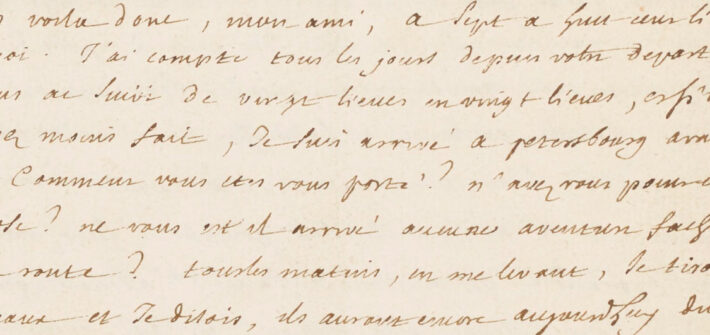 voila donc, mon ami, a sept a huit cens li
oi. J'ai compté tous les jours depuis votre depart
us ai suivi de vingt lieues en vingt lieues, et si
ez moins fait, Je suis arrivé a petersbourg ava
Comment vous etes vous porté? n'avez vous point e
sse? ne vous est il arrivé aucune aventure fach
route? tous les matins, en me levant, Je tiro
eaux et Je disois, ils auront encore aujourd'huy du